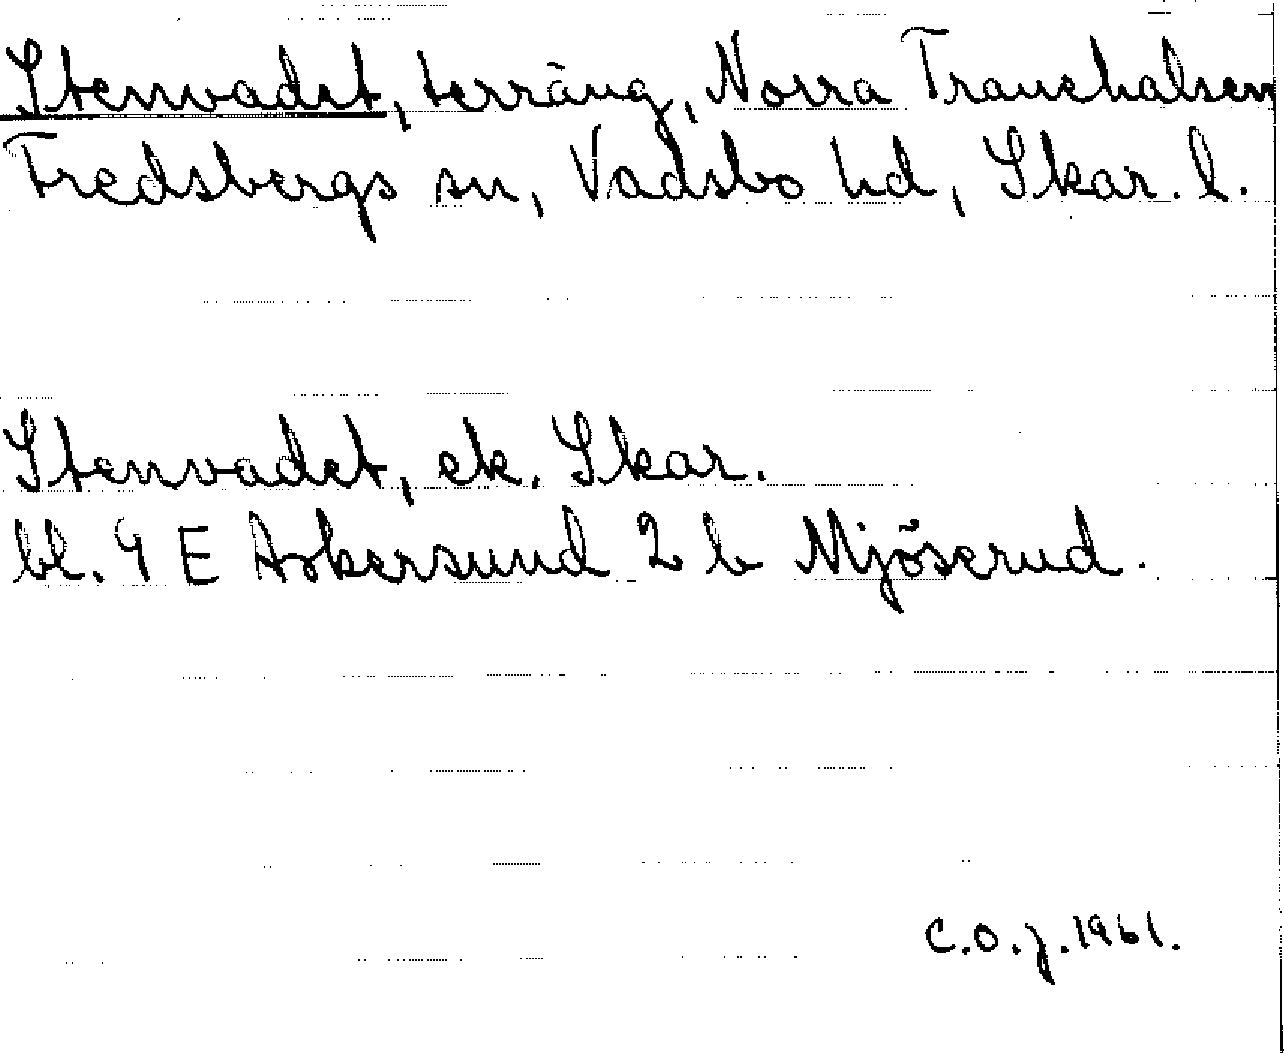 Stenvadet, terräng, Norra Tranehalsen
Fredsbergs sn, Vadsbo hd, Skar. l.
Stenvadet, ek. Skar.
bl. 9 E Askersund 2 b Mjöserud.
C.O.J. 1961.